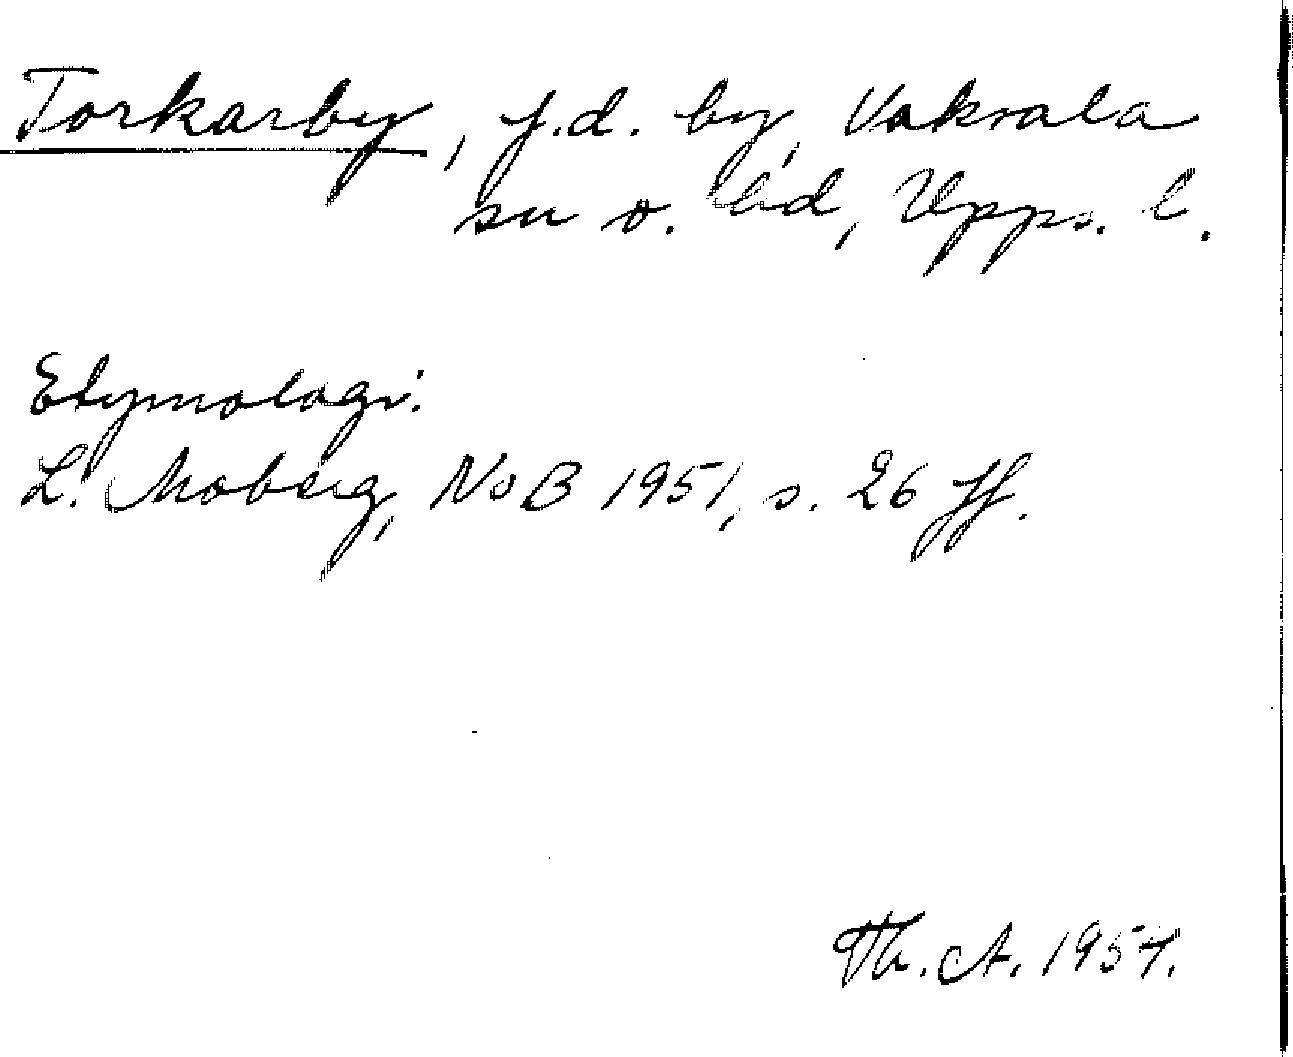 Torkarby, f.d. by, Vaksala
sn o. hd, Upps. l.
Etymologi:
L. Moberg, NoB 1951, s. 26 ff.
Th. A. 1954.